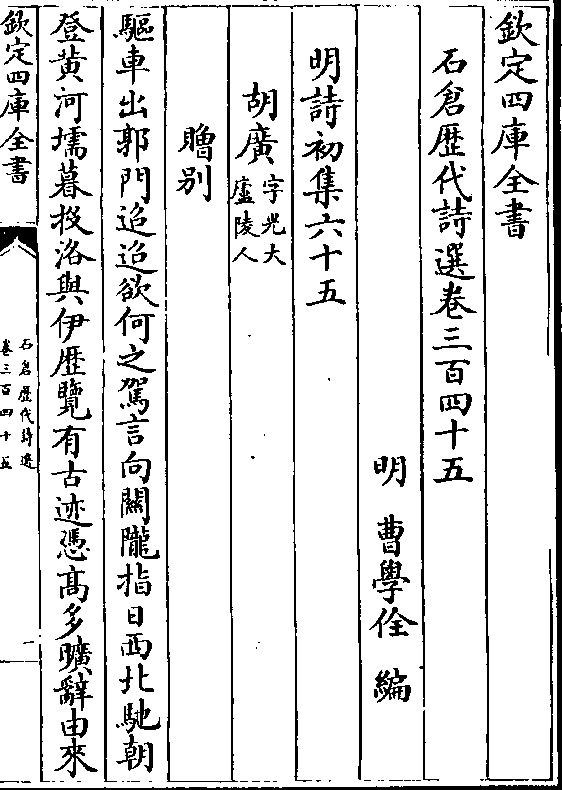 欽定四庫全書
石倉歴代詩選卷三百四十五
明 曹學佺 編
明詩初集六十五
胡廣字光大廬陵人
贈别
驅車出郭門迢迢欲何之駕言向關隴指日西北馳朝
登黄河壖暮投洛與伊歴覽有古迹憑髙多曠辭由來
欽定四庫全書
石倉歴代詩選
卷三百四十五
一